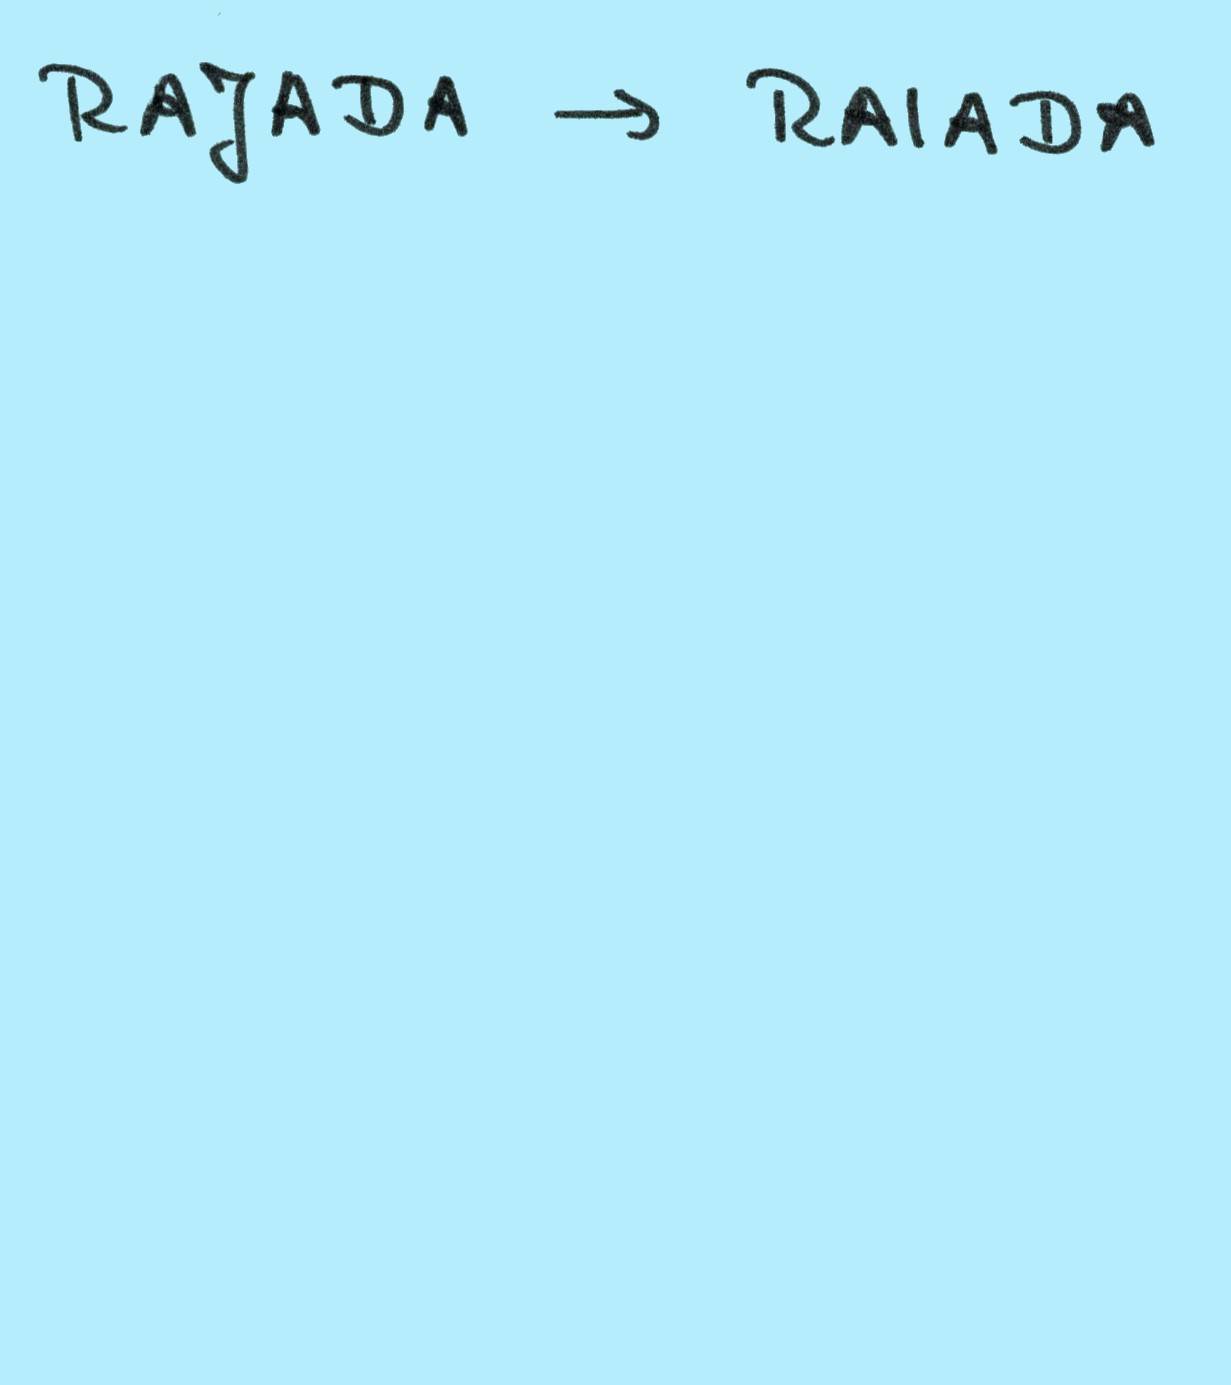 RAJADA → RAIADA